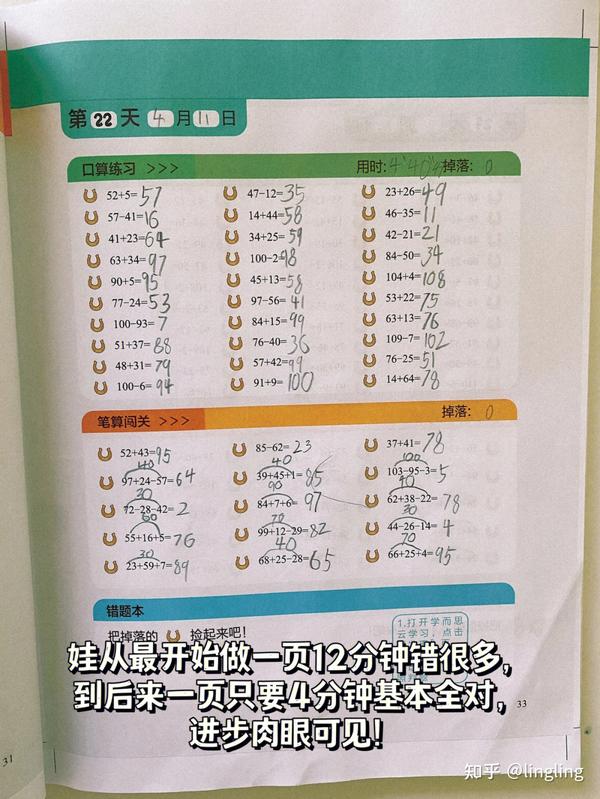 第22天 4月11日
口算练习 >>> 用时:4'40" 掉落: 0
52+5=57 47-12=35 23+26=49
57-41=16 14+44=58 46-35=11
41+23=64 34+25=59 42-21=21
63+34=97 100-2=98 84-50=34
90+5=95 45+13=58 104+4=108
77-24=53 97-56=41 53+22=75
100-93=7 84+15=99 63+13=76
51+37=88 76-40=36 109-7=102
48+31=79 57+42=99 76-25=51
100-6=94 91+9=100 14+64=78
笔算闯关 >>> 掉落: 0
52+43=95 85-62=23 37+41=78
140 40 100
97+24-57=64 39+45+1=85 103-95-3=5
30 90 40
72-28-42=2 84+7+6=97 62+38-22=78
60 70 30
55+16+5=76 99+12-29=82 44-26-14=4
30 40 70
23+59+7=89 68+25-28=65 66+25+4=95
错题本
把掉落的 捡起来吧!
1.打开学而思
云学习,点击
娃从最开始做一页12分钟错很多,
到后来一页只要4分钟基本全对,
进步肉眼可见!
31
33
知乎 @lingling